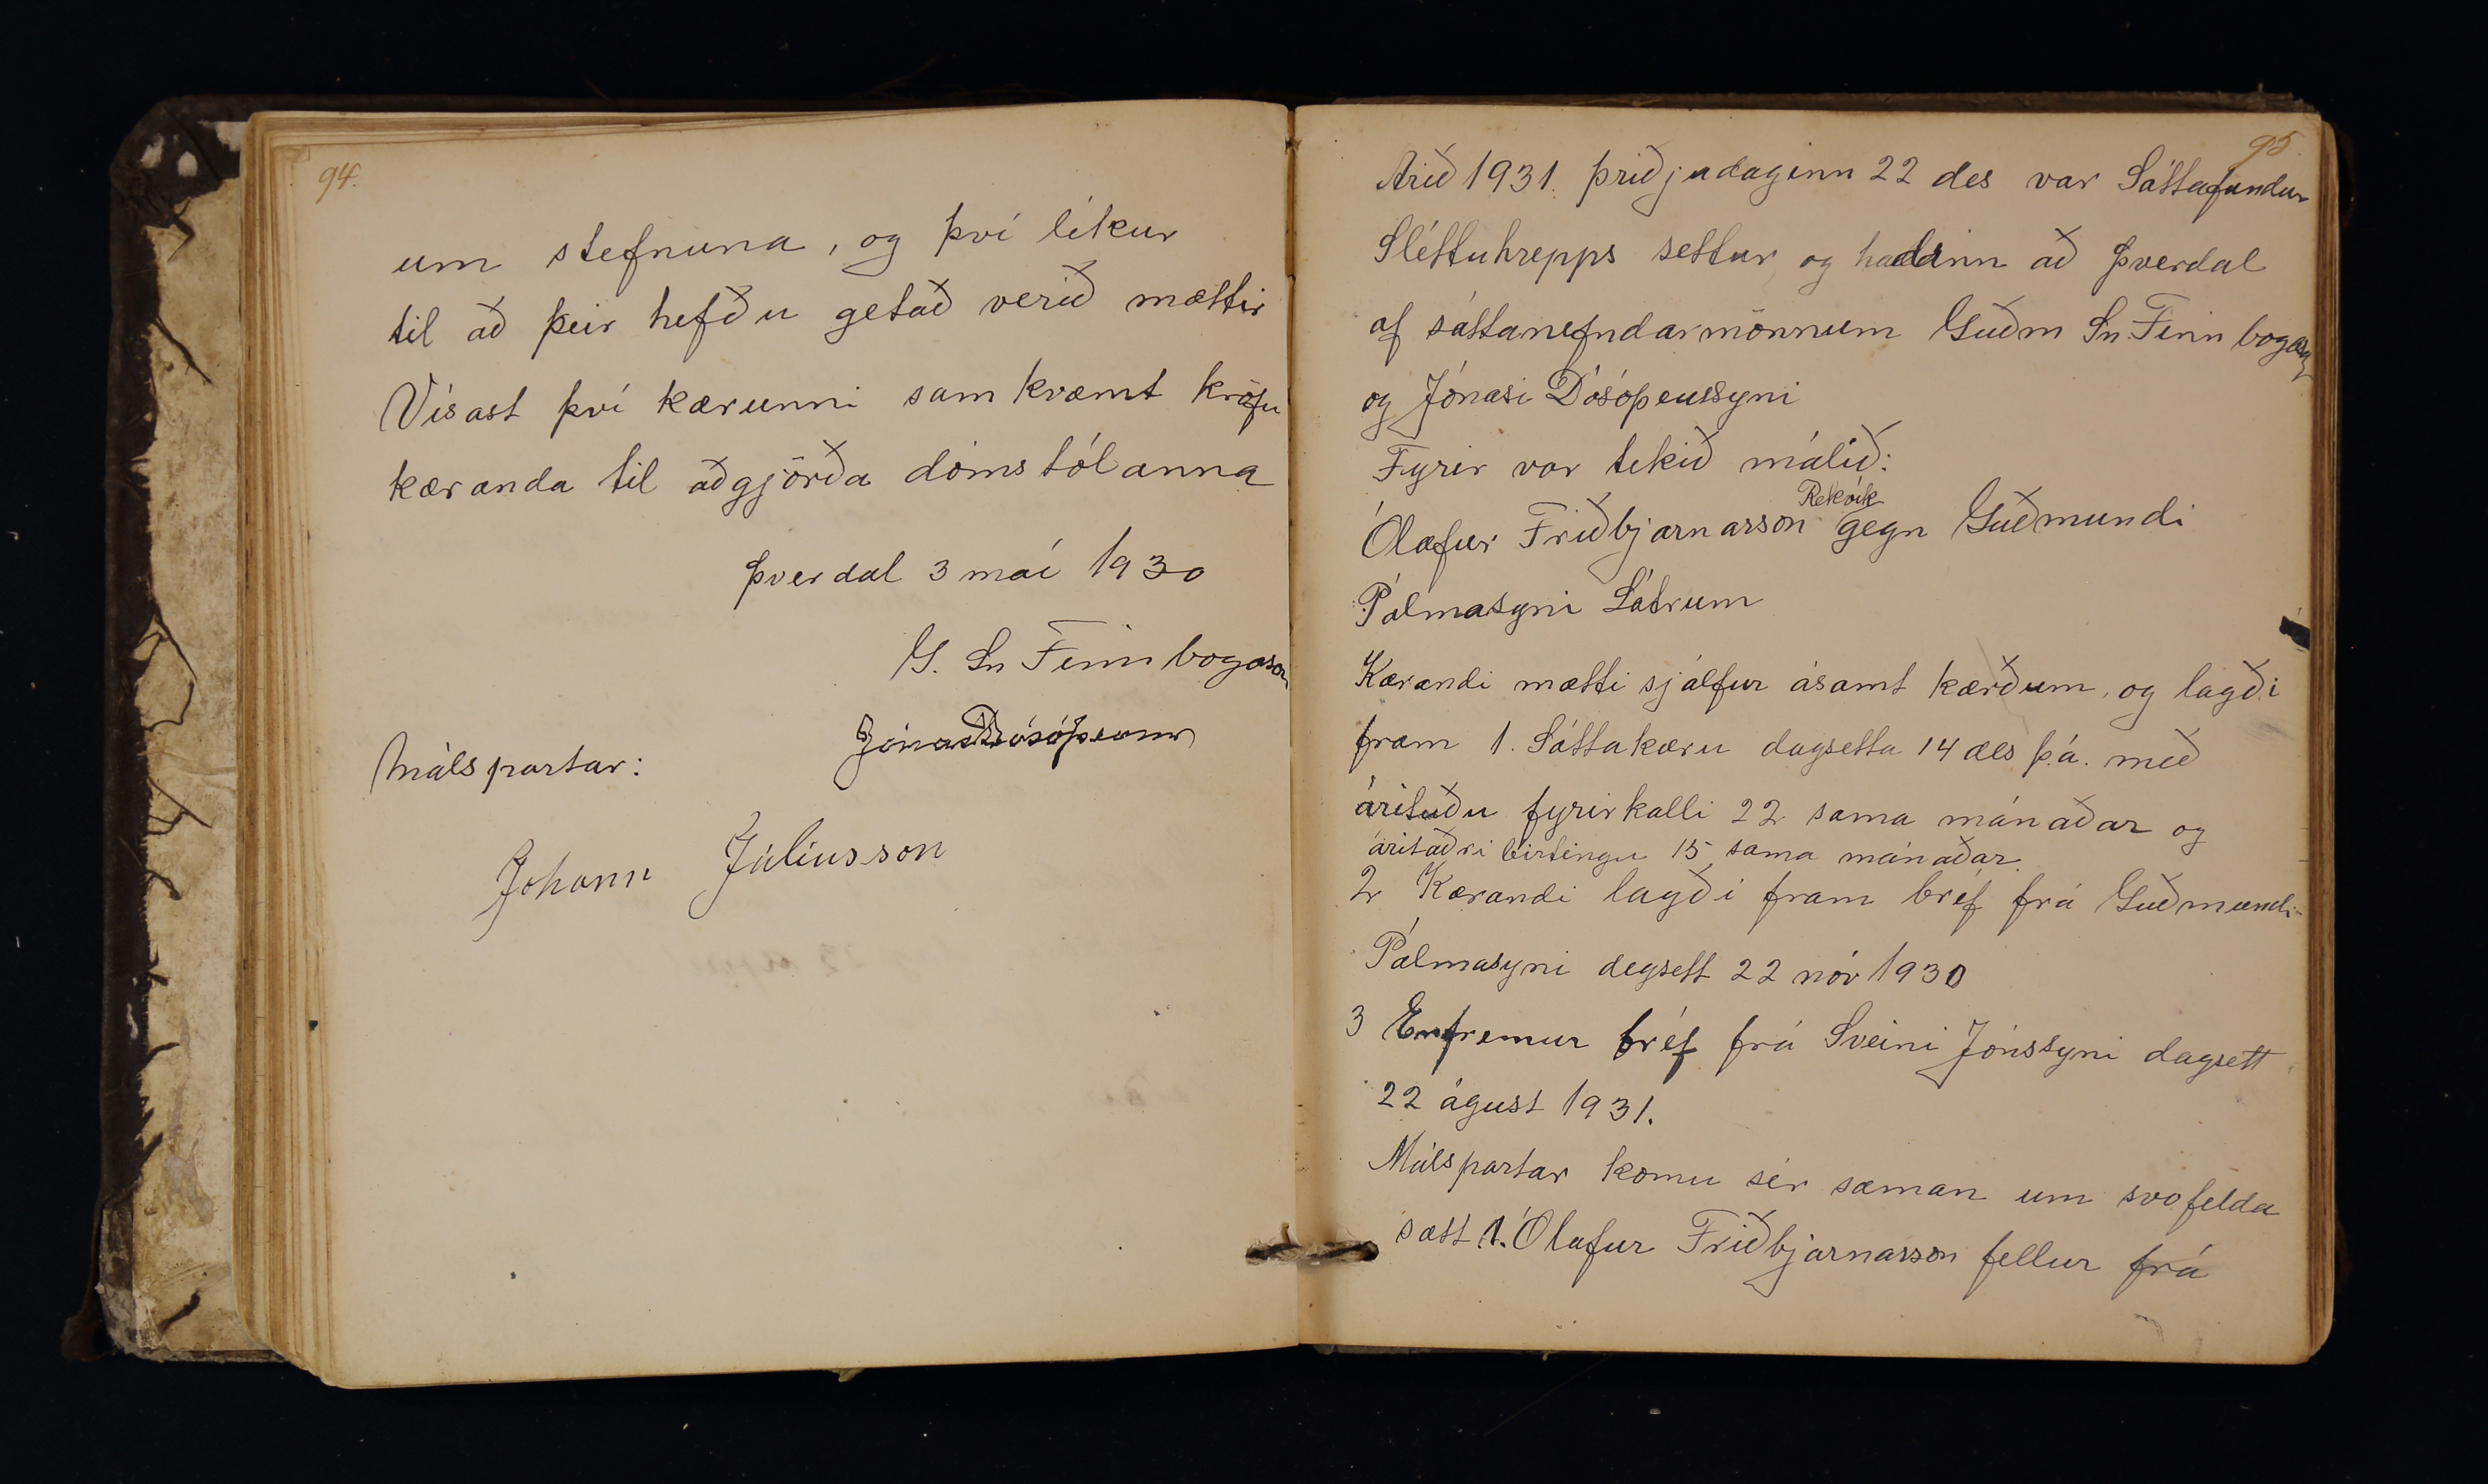 94.
um stefnuna, og því líkur
til að þeir hefðu getað verið mættir
Vísast því kærunni samkvæmt kröfu
kæranda til aðgjörða dómstólanna
Þverdal 3 maí 1930
G. Sn Finnbogason
Jónas Dósóþeuss
Málspartar:
Johann Júlíusson
95.
Árið 1931. þriðjudaginn 22 des var Sáttafundur
Sléttuhrepps settur og haldinn að Þverdal
af sáttanefndarmönnum Guðm Sn. Finnbogas
og Jónasi Dósóþeussyni
Fyrir var tekið málið:
Rekvík
Ólafur Friðbjarnarson gegn Guðmundi
Pálmasyni Látrum
Kærandi mætti sjálfur ásamt kærðum, og lagði
fram 1. Sáttakæru dagsetta 14 des þ.á. með
árituðu fyrirkalli 22 sama mánaðar og
áritaðri birtingu 15 sama mánaðar.
2 Kærandi lagði fram bréf frá Guðmundi
Pálmasyni degsett 22 nóv 1930
3 Enfremur bréf frá Sveini Jónssyni dagsett
22 águst 1931.
Málspartar komu sér saman um svofelda
sætt 1. Ólafur Friðbjarnarson fellur frá